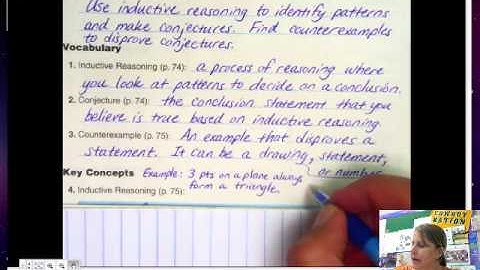 Use inductive reasoning to identify patterns
and make conjectures. Find counterexamples
to disprove conjectures.
Vocabulary
1. Inductive Reasoning (p. 74): a process of reasoning where
you look at patterns to decide on a conclusion.
2. Conjecture (p. 74): the conclusion statement that you
believe is true based on inductive reasoning.
3. Counterexample (p. 75): An example that disproves a
statement. It can be a drawing, statement,
or number
Key Concepts Example: 3 pts on a plane always
4. Inductive Reasoning (p. 75): form a triangle.
COWBOY
NATION